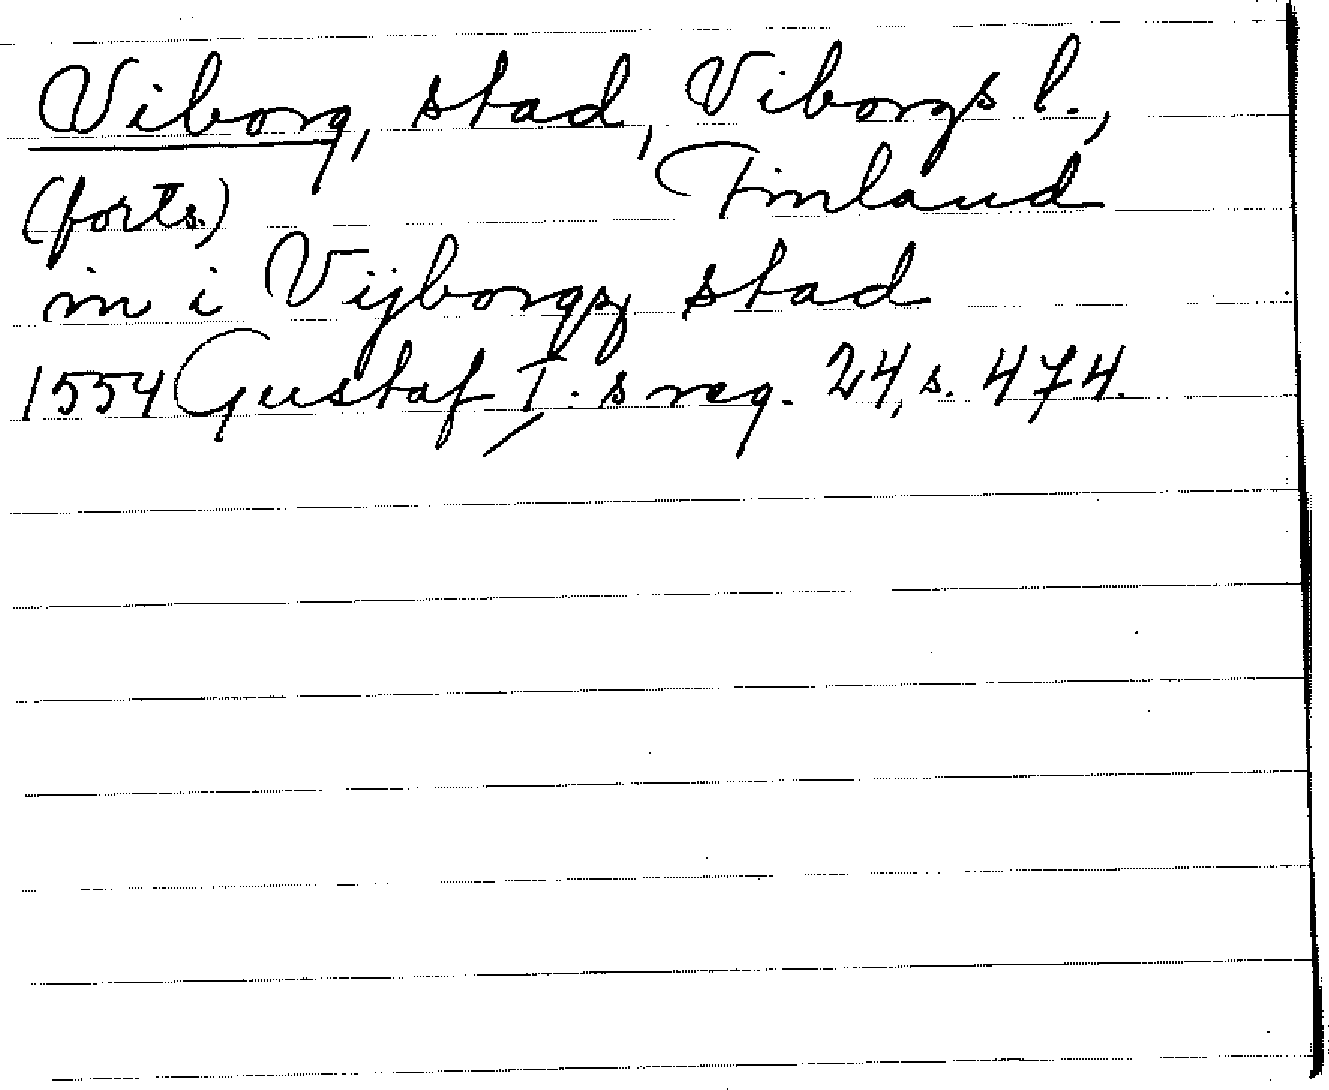 Viborg, stad, Viborgs l.,
(forts.) Finland
in i Vijborgs stad
1554 Gustaf I:s reg. 24, s. 474.